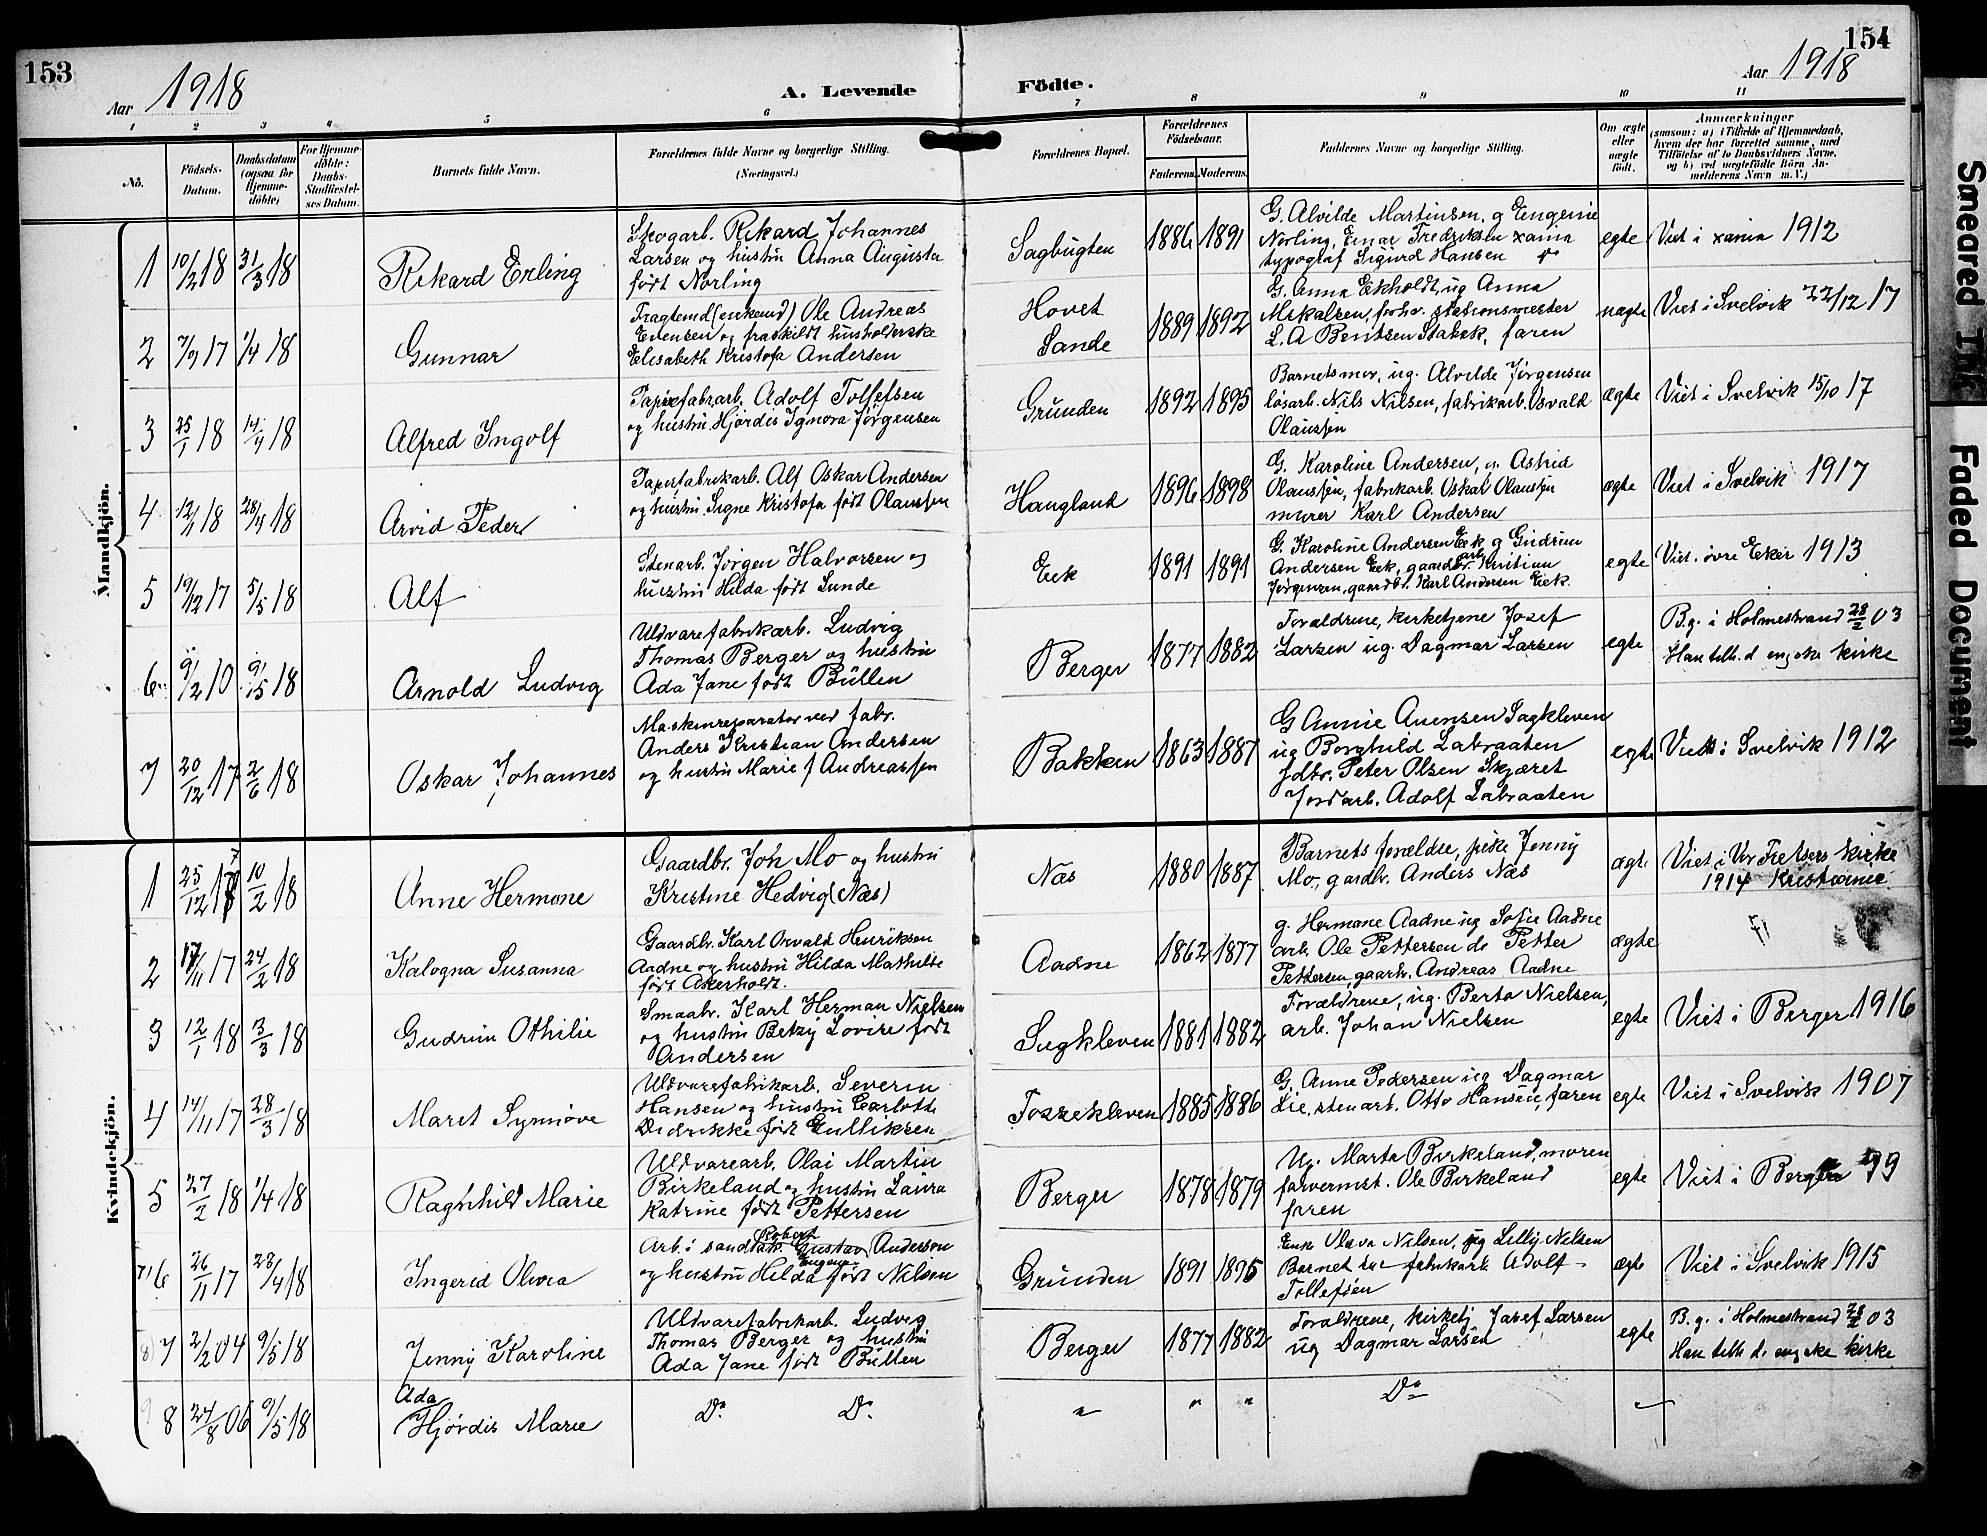 153
Aar 1918
A. Levende
Födte.
Aar 1918
154
1 2 3 4 5 6 7 8 9 10 11
No.
Födsels-Datum.
Daabsdatum (ogsaa for Hjemme-döbte)
For Hjemme-döbte: Daabs-Stadfæstel-ses Datum.
Barnets fulde Navn.
Forældrenes fulde Navne og borgerlige Stilling. (Næringsvei.)
Forældrenes Bopæl.
Forældrenes Födselsaar.
Faderens. Moderens.
Faddernes Navne og borgerlige Stilling.
Om ægte eller uægte födt.
Anmærkninger
(saasom: a) i Tilfælde af Hjemmedaab, hvem der har forrettet samme, med Tilföielse af to Daabsvidners Navne, og b) ved uægtefödte Börn An-melderens Navn m. V.)
Mandkjön.
1 10/2 18 31/3 18 Rikard Erling
Skogarb. Rikard Johannes
Larsen og hustru Anna Augusta
født Norling
Sagbugten 1886 1891
G. Alvilde Martinsen, g Eugenie
Norling, Einar Fredriksen xania
typograf Sigurd Hansen
egte Viet i xania 1912
2 7/9 17 1/4 18 Gunnar
Fragtemd (enkemd) Ole Andreas
Evensen og fraskildt husholderske
Elisabeth Kristofa Andersen
Hovet
Sande 1889 1892
G. Anna Ekholdt, ug Anna
Mikalsen, forhv. stationsmester
L. A Bentsen Stabek, faren
uægte Viet i Svelvik 22/12 17
3 25/1 18 14/4 18 Alfred Ingolf
Papirfabrarb. Adolf Tollefsen
og hustru Hjørdis Ignora Jørgensen
Grunden 1892 1895
Barnets mor, ug. Alvilde Jørgensen
løsarb. Nils Nilsen, fabrikarb. Osvald
Olaussen
ægte Viet i Svelvik 15/10 17
4 12/1 18 28/4 18 Arvid Peder
Papirfabrikarb. Alf Oskar Andersen
og hustru Signe Kristofa født Olaussen
Haugland 1896 1898
G. Karoline Andersen, g. Astrid
Olaussen, fabrikarb. Oskar Olaussen
murer Karl Andersen
ægte Viet i Svelvik 1917
5 19/12 17 5/5 18 Alf
Stenarb. Jørgen Halvorsen og
hustru Hilda født Lunde
Eek 1891 1891
G. Karoline Andersen Eek g Gudrun
Andersen Eek, gaardarb. Kristian
Jørgensen, gaardbr. Karl Andersen Eek.
egte Viet i øvre Eker 1913
6 9/2 10 9/5 18 Arnold Ludvig
Uldvarefabrikarb. Ludvig
Thomas Berger og hustru
Ada Jane født Büllen
Berger 1877 1882
Forældrene, kirketjene Josef
Larsen ug. Dagmar Larsen
egte B.g. i Holmestrand 28/2 03
Han tilh. d. engske kirke
7 20/12 17 2/6 18 Oskar Johannes
Maskinreparatør ved fabr.
Anders Kristian Andersen
og hustru Marie f Andreassen
Bakken 1863 1887
G Annie Auensen Sagkleven
ug Borghild Labraaten
gdbr. Peter Olsen Skjæret
Jordarb. Adolf Labraaten
egte Viet i Svelvik 1912
Kvindekjön.
1 25/12 17 10/2 18 Anne Hermone
Gaardbr. Joh Mo og hustru
Kristine Hedvig (Næs)
Næs 1880 1887
Barnets forældre, pike Jenny
Mo, gardbr. Anders Næs
ægte Viet i Vor Frelsers kirke
1914 Kristiania
2 17/11 17 24/2 18 Kalogna Susanna
Gaardbr. Karl Osvald Henriksen
Aadne og hustru Hilda Mathilde
født Akerholdt.
Aadne 1862 1877
g. Hermane Aadne ug Sofie Aadne
arb. Ole Pettersen do Petter
Pettersen, gaarbr. Andreas Aadne
ægte
3 12/1 18 3/3 18 Gudrun Othilie
Smaabr. Karl Herman Nielsen
og hustru Betzy Lovise født
Andersen
Sagkleven 1881 1882
Forældrene, ug. Berta Nielsen,
arb. Johan Nielsen
egte Viet i Berger 1916
4 14/11 17 28/3 18 Marit Synnøve
Uldvarefabrikarb. Severin
Hansen og hustru Carlotte
Didrikke født Gulliksen
Fossekleven 1885 1886
G. Anne Pedersen ug Dagmar
Lie, stenarb. Otto Hansen, faren
egte Viet i Svelvik 1907
5 27/2 18 1/4 18 Ragnhild Marie
Uldvarearb. Olai Martin
Birkeland og hustru Laura
Katrine født Pettersen
Berger 1878 1879
Ug. Marta Birkeland, moren
farvermst. Ole Birkeland
faren
egte Viet i Berger 99
6 26/11 17 28/4 18 Ingerid Olivia
Robert
Arb. i sandtak. Gustav Anderson
Eugenie
og hustru Hilda født Nilsen
Grunden 1891 1895
Enke Olava Nilsen, ug Lilly Nilsen
Barnet fabrikarb. Adolf
Tollefsen
ægte Viet i Svelvik 1915
8) 7 2/2 04 9/5 18 Jenny Karoline
Uldvarefabrikarb. Ludvig
Thomas Berger og hustru
Ada Jane født Büllen
Berger 1877 1882
Forældrene, kirketj Josef Larsen
ug Dagmar Larsen
egte B.g. i Holmestrand 28/2 03
Han tilh d. engske kirke
9 8 24/8 06 9/5 18 Ada
Hjørdis Marie
Do Do
" " " Do
Smeared Ink
Faded Document